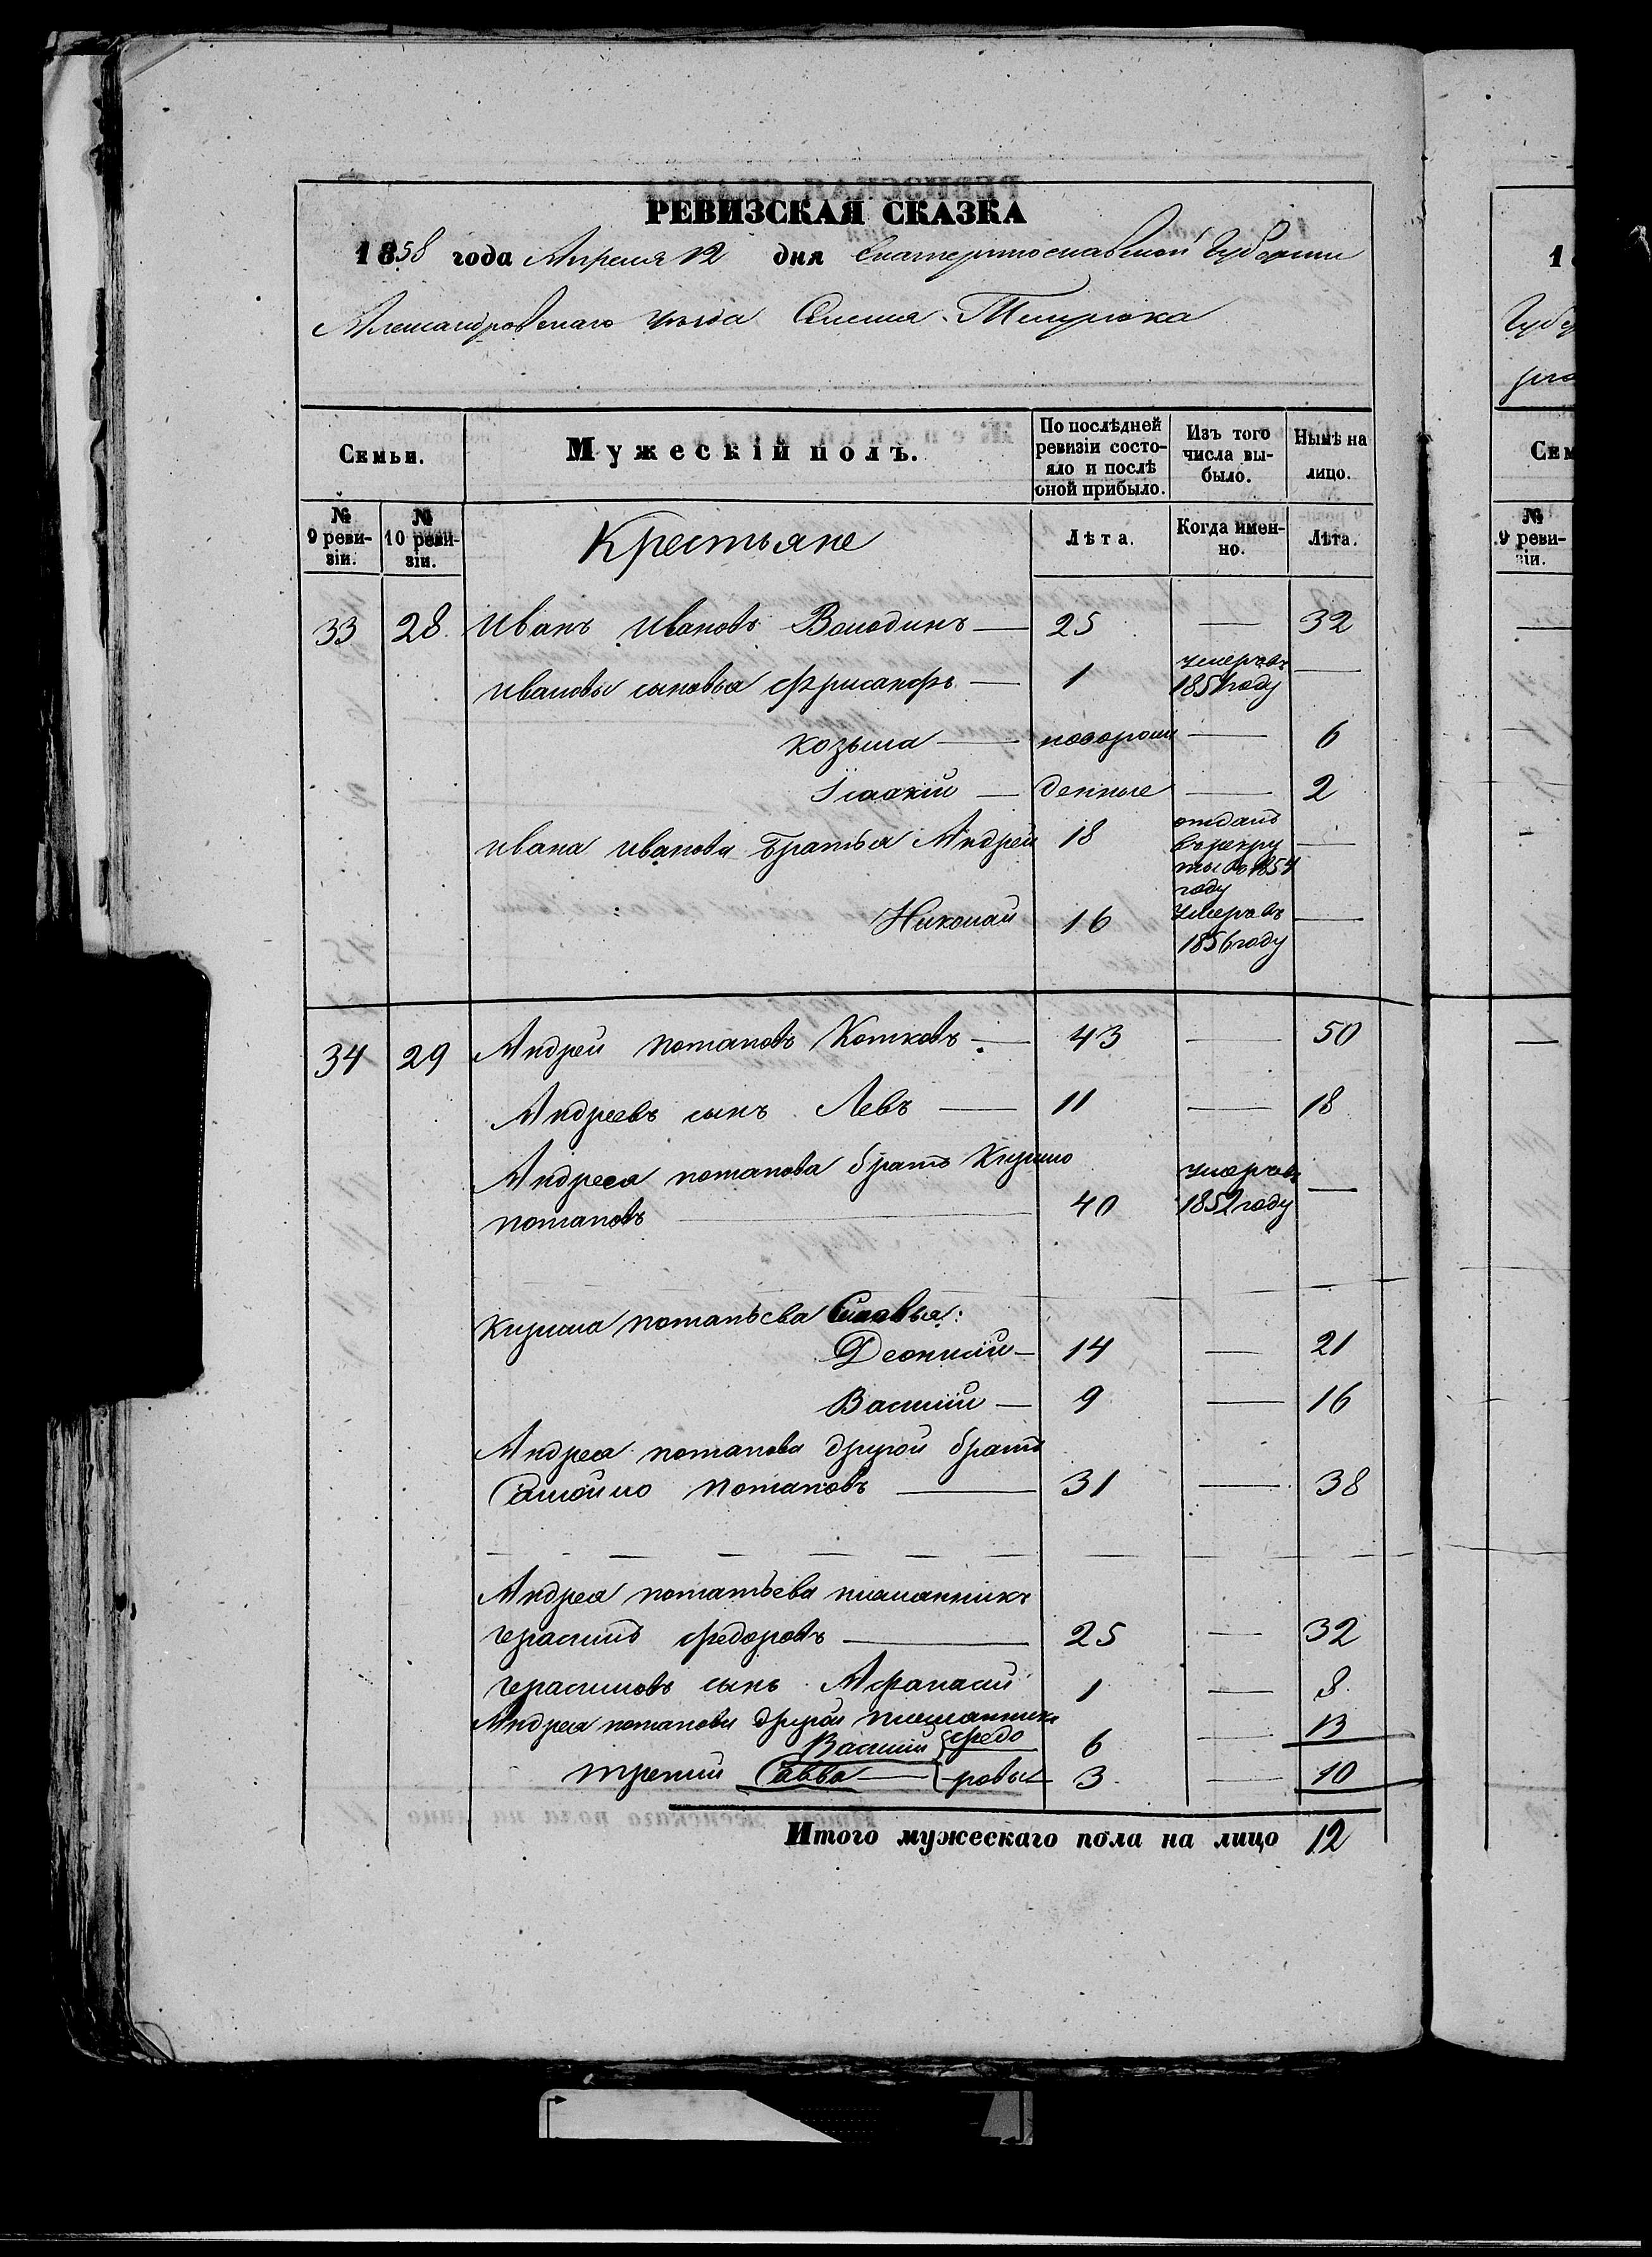 РЕВИЗСКАЯ СКАЗКА
1858 года Апреля 12 дня Екатеринославской Губернии
Александровскаго уѣзда Селения Темрюка
Семьи. Мужескій полъ. По послѣдней ревизіи состояло и послѣ оной прибыло. Изъ того числа выбыло. Нынѣ на лицо.
№ 9 ревизіи. № 10 ревизіи. Крестьяне Лѣта. Когда именно. Лѣта.
33 28 Иванъ Ивановъ Володинъ — 25 — 32
Ивановы сыновья Фрисанфъ — 1 умеръ въ 1851 году —
Козьма — новорож — 6
Ісаакій — денные — 2
Ивана Иванова братья Андрей 18 отданъ въ рекруты въ 1854 году —
Николай 16 умеръ въ 1856 году —
34 29 Андрей Потаповъ Котковъ — 43 — 50
Андреевъ сынъ Левъ — 11 — 18
Андрея Потапова братъ Кирило
Потаповъ — 40 умеръ въ 1852 году —
Кирила Потапьева Сыновья:
Деонисій — 14 — 21
Василій — 9 — 16
Андрея Потапова другой братъ
Самойло Потаповъ — 31 — 38
Андрея Потапьева племянникъ
Герасимъ Федоровъ — 25 — 32
Герасимовъ сынъ Афанасій 1 — 8
Андрея Потапова другой племянникъ
Василій Федо 6 — 13
третий Савва — ровы 3 — 10
Итого мужескаго пола на лицо 12
1
Губе
Сем
№ 9 ревизіи.